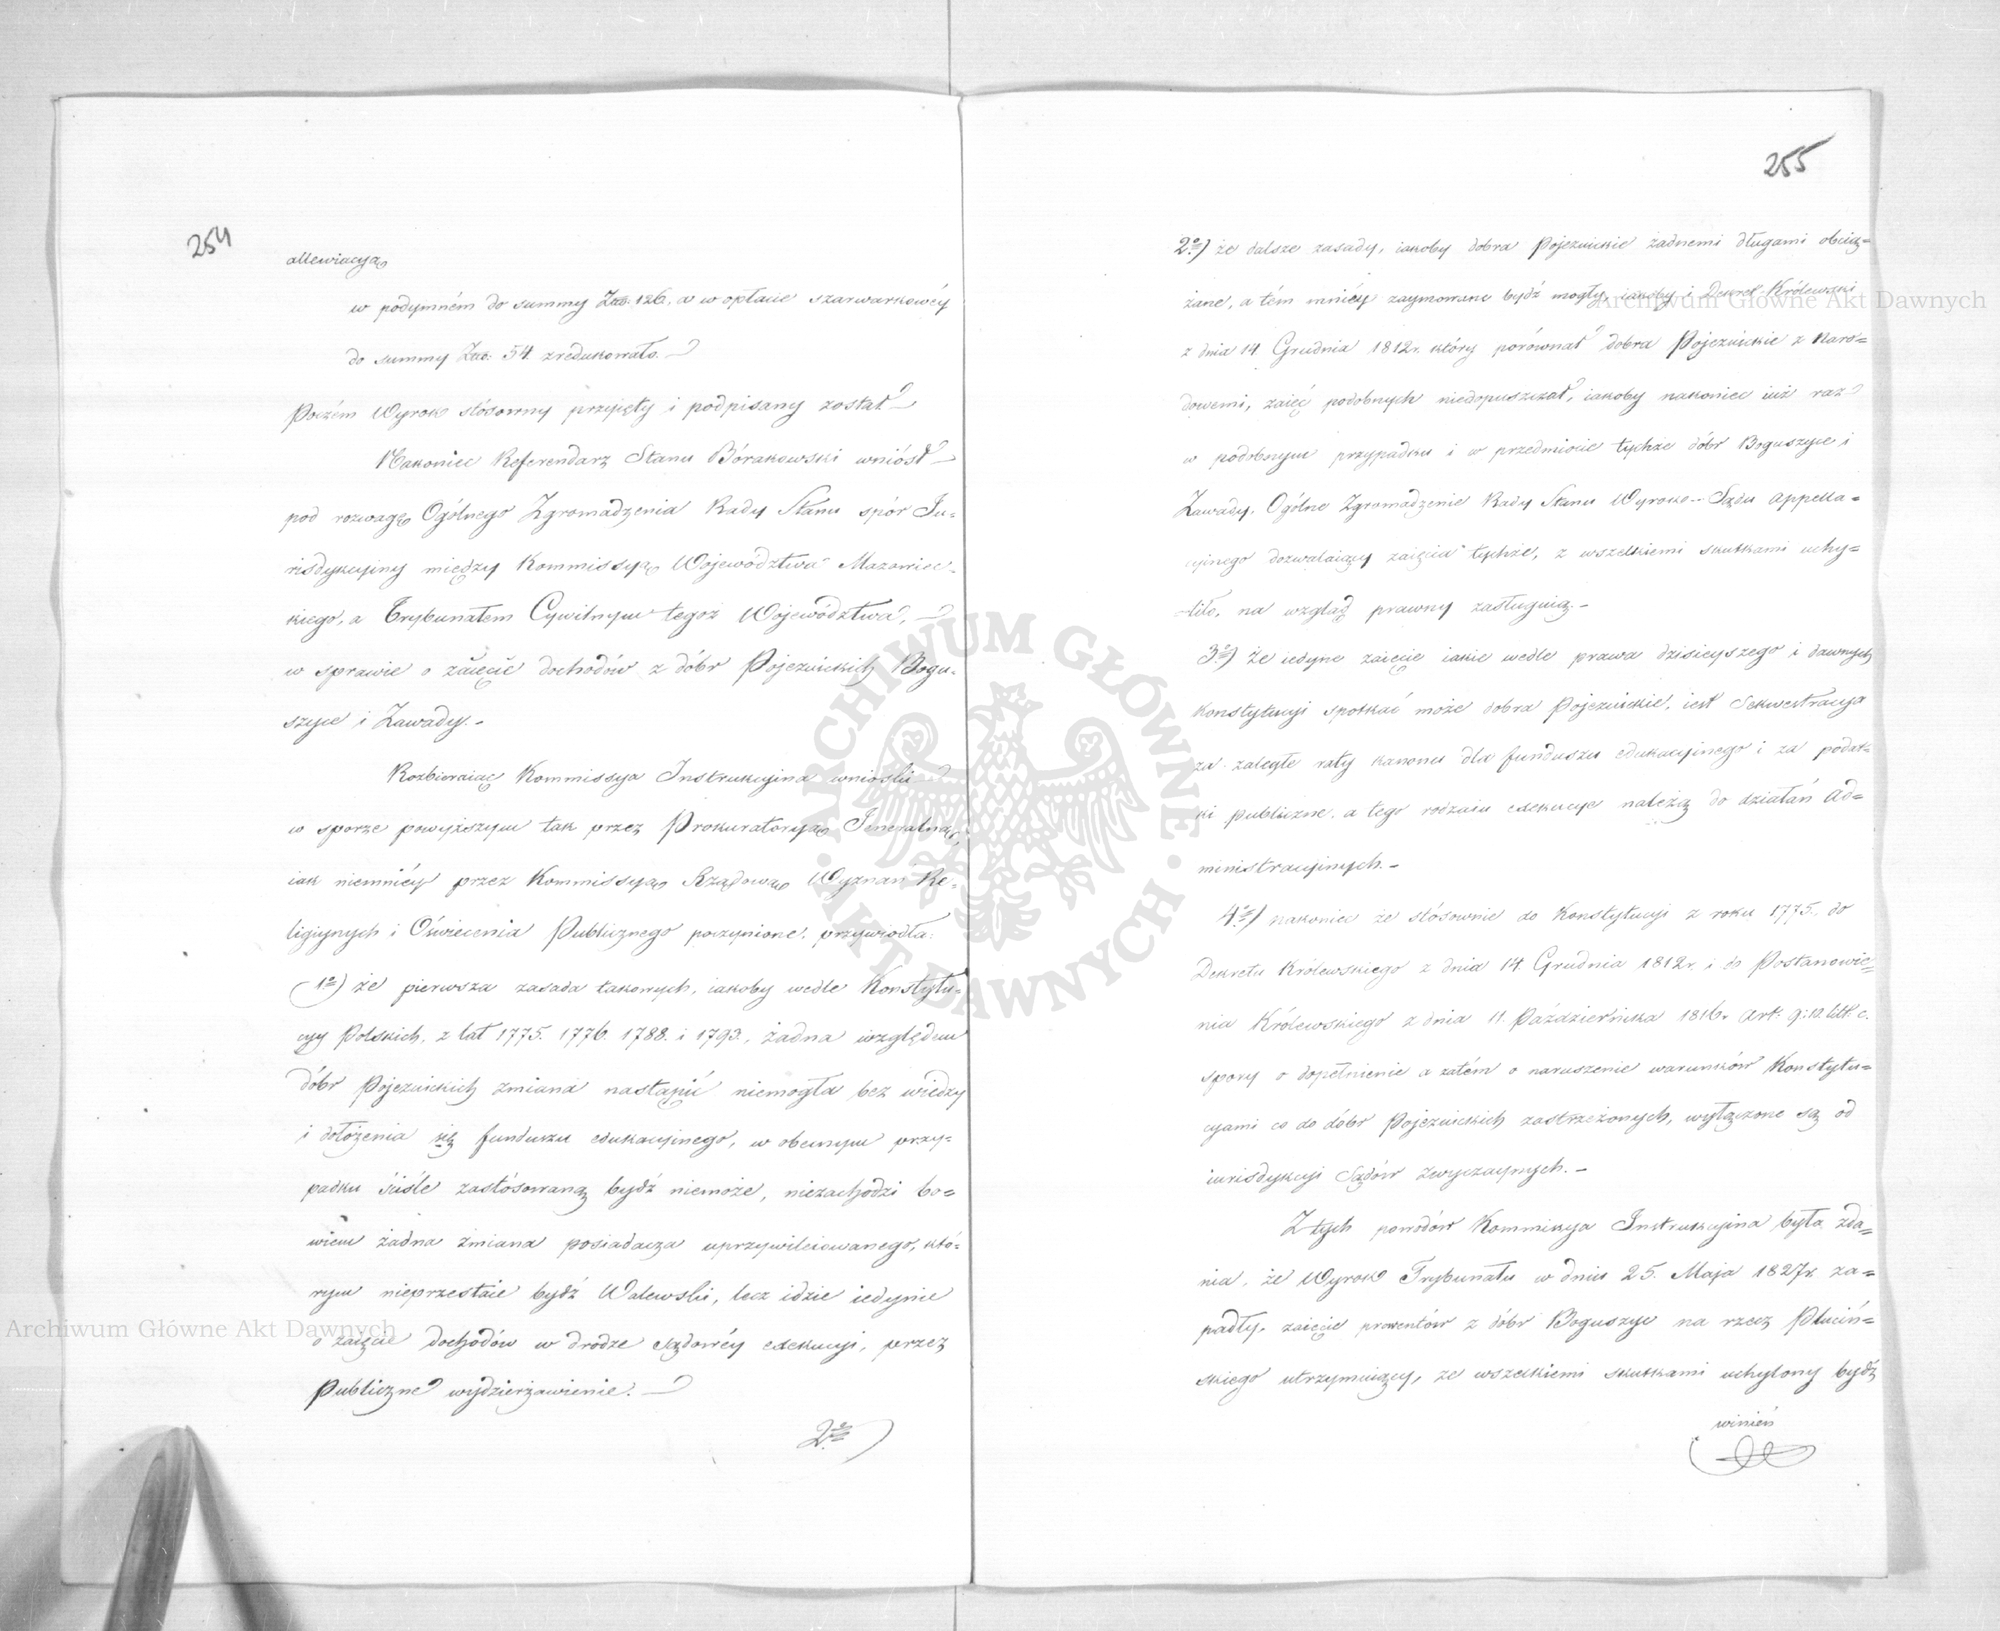 254
allewiacyą
w podymném do summy Złp. 126, a w opłacie szarwarkowéy
do summy Złp. 54 zredukowała.
Poczém Wyrok stósowny przyięty i podpisany został
Nakoniec Referendarz Stanu Bórakowski wniósł
pod rozwagę Ogólnego Zgromadzenia Rady Stanu spór Ju-
risdykcyiny między Kommissyą Województwa Mazowiec-
kiego, a Trybunałem Cywilnym tegoż Województwa,
w sprawie o zaięcie dochodów z dóbr Pojezuickich Bogu-
szyce i Zawady.-
Rozbieraiąc Kommissya Instrukcyina wnioski
w sporze powyższym tak przez Prokuratoryą Jeneralną,
iak niemniéy przez Kommissyą Rządową Wyznań Re-
ligiynych i Oświecenia Publicznego poczynione, przywiodła:
1º) że pierwsza zasada takowych, iakoby wedle Konstytu-
cyy Polskich, z lat 1775. 1776. 1788. i 1793., żadna względem
dóbr Pojezuickich zmiana nastąpić niemogła bez wiedzy
i dołożenia się funduszu edukacyinego, w obecnym przy-
padku ściśle zastósowaną bydź niemoże, niezachodzi bo=
wiem żadna zmiana posiadacza uprzywileiowanego, któ-
rym nieprzestaie bydź Walewski, lecz idzie iedynie
o zaięcie dochodów w drodze sądowéy exekucyi, przez
Publiczne wydzierżawienie.
2º)
255
2º) że dalsze zasady, iakoby dobra Pojezuickie żadnemi długami obcią=
żane, a tém mniéy zaymowane bydź mogły, iakoby i Dekret Królewski
z dnia 14 Grudnia 1812r. który porównał dobra Pojezuickie z Naro=
dowemi, zaięć podobnych niedopuszczał, iakoby nakoniec iuż raz
w podobnym przypadku i w przedmiocie tychże dóbr Boguszyce i
Zawady, Ogólne Zgromadzenie Rady Stanu Wyrok Sądu Appella=
cyinego dozwalaiący zaięcia tychże, z wszelkiemi skutkami uchy=
liło, na wzgląd prawny zasługuią.-
3º) Że iedyne zaięcie iakie wedle prawa dzisieyszego i dawnych
Konstytucyi spotkać może dobra Pojezuickie, iest Sekwestracya
za zaległe raty kanonu dla funduszu edukacyinego i za podat=
ki publiczne, a tego rodzaiu exekucye należą do działań Ad=
ministracyinych.-
4º) nakoniec że stósownie do Konstytucyi z roku 1775., do
Dekretu Królewskiego z dnia 14. Grudnia 1812r. i do Postanowie=
nia Królewskiego z dnia 11. Października 1816r. Art: 9:10. litt: c.
spory o dopełnienie a zatém o naruszenie warunków Konstytu=
cyami co do dóbr Pojezuickich zastrzeżonych, wyłączone są od
iurisdykcyi Sądów zwyczaynych.-
Z tych powodów Kommissya Instrukcyina była zda=
nia, że Wyrok Trybunału w dniu 25. Maja 1827r. za=
padły, zaięcie prowentów z dóbr Boguszyc na rzecz Pluciń=
skiego utrzymuiący, ze wszelkiemi skutkami uchylony bydź
winień
Archiwum Główne Akt Dawnych
Archiwum Główne Akt Dawnych
ARCHIWUM GŁÓWNE
AKT DAWNYCH